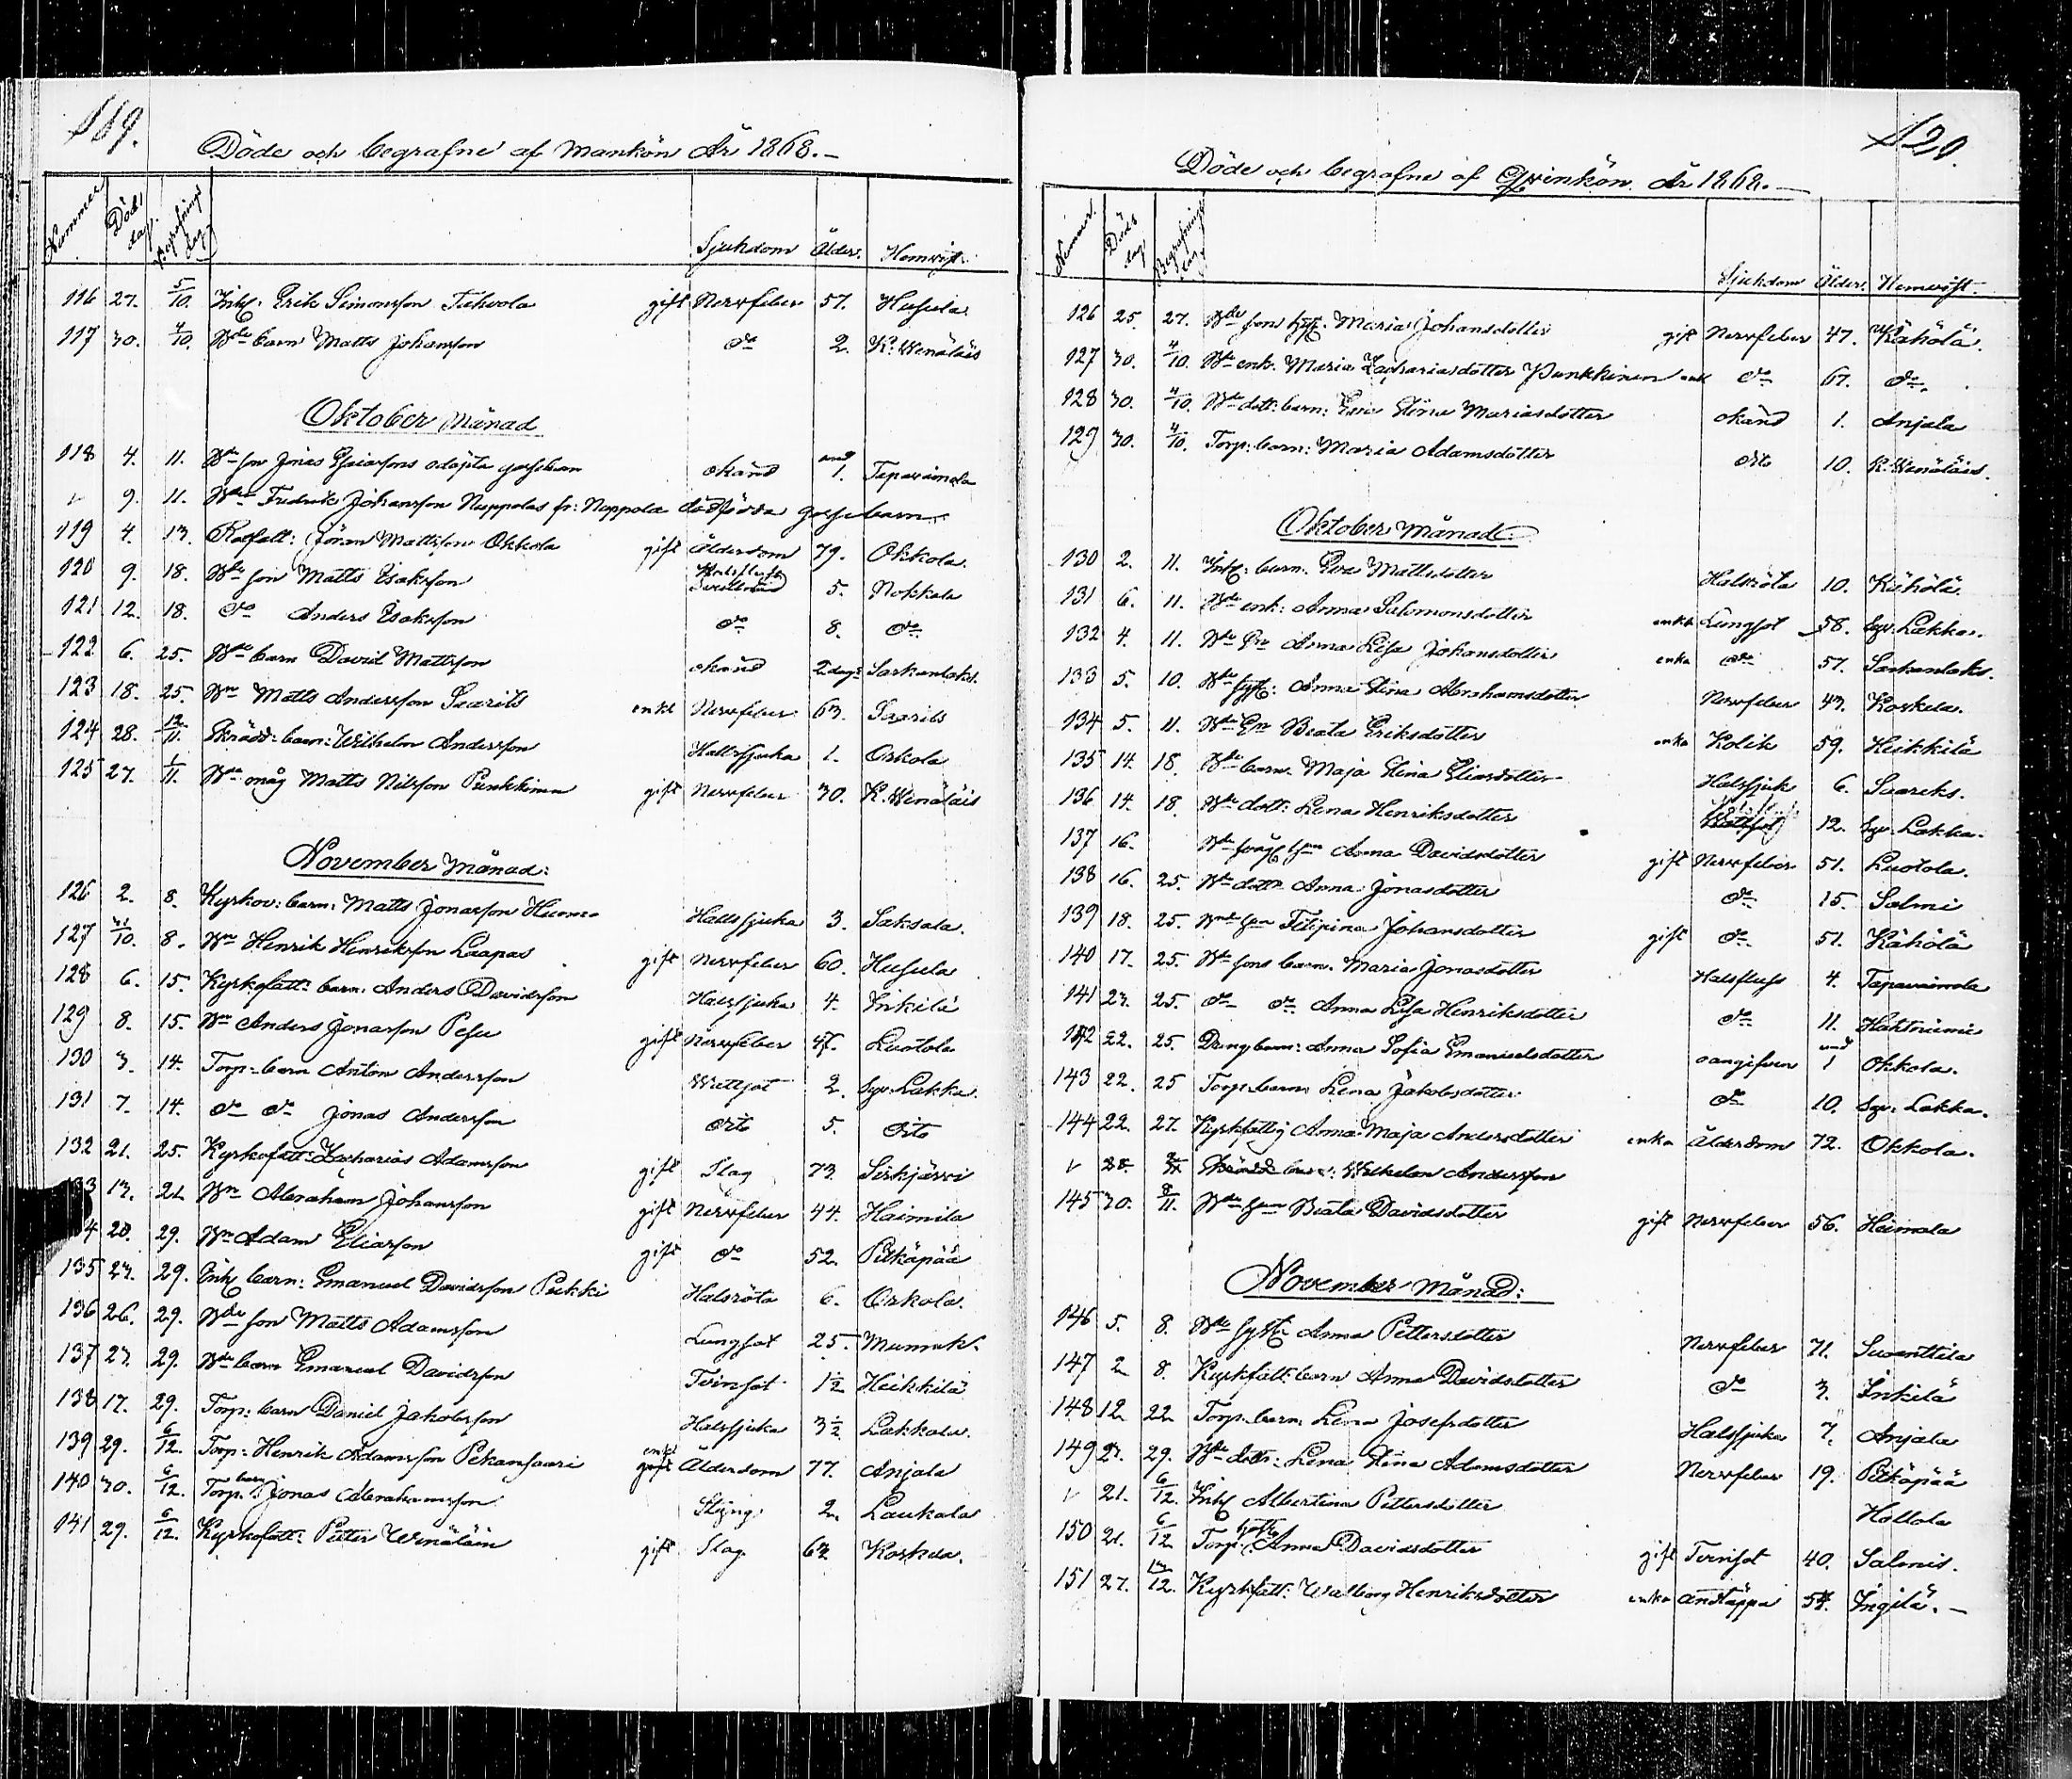 119.
Döde och begrafne af Mankön År 1868.
Nummer Döds dag. Begrafnings dag. Sjukdom Ålder. Hemvist.
116 27. 5/10. Inh: Erik Simonsson Tuhvola gift Nervfeber 57. Husula
117 30. 4/10. Bde barn Matts Johansson do 2. K. Wenäläis
Oktober Månad
118 4. 11. Bde son Jonas Esaiassons odöpta gossebarn okänd 1. Tapavainola
v 9. 11. Fredrik Johansson Nuppolas fr: Nuppola dödfödda gossebarn
119 4. 13. Rotfatt: Jöran Mattsson Okkola gift Ålderdom 79. Okkola.
120 9. 18. Bde son Matts Isaksson 5. Nokkala
121 12. 18. do Anders Isaksson do 8. do
122 6. 25. Bde barn David Mattsson okänd 2 dag: Sarkanlaks.
123 18. 25. Bn Matts Andersson Saariks enkl Nervfeber 63. Saariks
124 28. 12/11. Skrädd: barn: Wilhelm Andersson Halssjuka 1. Orkola
125 27. 1/11. Bde måg Matts Nilsson Punkkinen gift Nervfeber 30. K. Wenäläis
November Månad:
126 2. 8. Kyrkov: barn: Matts Jonasson Halssjuka 3. Saksala.
127 31/10. 8. Bn Henrik Henriksson Laapas gift Nervfeber 60. Husula
128 6. 15. Kyrkofatt: barn: Anders Davidsson Halssjuka 4. Inkilä
129 8. 15. Bn Anders Jonasson Pesu gift Nervfeber 47. Luotola
130 3. 14. Torp: barn Anton Andersson Wattsot 2. Syv: Lakka.
131 7. 14. do do Jonas Andersson dito 5. dito
132 21. 25. Kyrkofatt: Zacharias Adamsson gift Slag 73. Sirkjärvi
133 13. 21. Bn Abraham Johansson gift Nervfeber 44. Haimila
4 20. 29. Bn Adam Eliasson gift do 52. Pitkäpää
135 23. 29. Inh: barn: Emanuel Davidsson Pukki Halsröta 6. Orkola.
136 26. 29. Bde son Matts Adamsson Lungsot 25. Mumuk.
137 23. 29. Bde barn Emanuel Davidsson Tvinsot 1½ Heikkilä
138 17. 29. Torp: barn Daniel Jakobsson Halssjuka 3½ Lakkala.
139 29. 6/12. Torp: Henrik Adamsson Pekansaari enkl Ålderdom 77. Anjala
140 30. 6/12. Torp: barn Jonas Abrahamsson Styng 2. Laukala
141 29. 6/12. Kyrkofatt: Petter Wenäläin gift Slag 63. Koskela.
120.
Döde och begrafne af Qvinkön År 1868.
Nummer. Döds dag. Begrafnings dag. Sjukdom Ålder. Hemvist.
126 25. 27. Bde sons hst: Maria Johansdotter gift Nervfeber 47. Kähölä.
127 30. 4/10. Bde enk. Maria Zachariasdotter Punkkinen enk do 67. do.
128 30. 4/10. Bde dott: barn: Eva Stina Mariasdotter okänd 1. Anjala
129 30. 4/10. Torp: barn: Maria Adamsdotter dito 10. K. Wenäläis.
Oktober Månad
130 2. 11. Inh: barn: Eva Mattsdotter Halsröta 10. Kähölä.
131 6. 11. Bde enk: Anna Salomonsdotter enka Lungsot 58. Syv. Lakka.
132 4. 11. Bde Anna Lisa Johansdotter enka do 57. Sarkanlaks.
133 5. 10. Bde Anna Stina Abrahamsdotter Nervfeber 43. Koskela.
134 5. 11. Bde Beata Eriksdotter enka Kolik 59. Heikkilä
135 14. 18. Bde barn. Maja Stina Eliasdotter Halssjuk 6. Saareks.
136 14. 18. Bde dott: Lena Henriksdotter 12. Syv. Lakka.
137 16. Anna Davidsdotter gift Nervfeber 51. Luotola.
138 16. 25. Bde dottr Anna Jonasdotter do 15. Salmi
139 18. 25. Filipina Johansdotter gift do 51. Kähölä
140 17. 25. Bde sons barn. Maria Jonasdotter Halsfluss 4. Tapavainola
141 23. 25. do do Anna Lisa Henriksdotter do 11.
142 22. 25. Dreng barn: Anna Sofia Emanuelsdotter oangifven 1 Okkola.
143 22. 25 Torp: barn Lena Jakobsdotter do 10. Syv: Lakka.
144 22. 27. Kyrkfattig Anna Maja Andersdotter enka Ålderdom 72. Okkola.
v 28. Skrädd barn: Wilhelm Andersson
145 30. 8/11. Beata Davidsdotter gift Nervfeber 56. Heimala
November Månad:
146 5. 8. Bde Anna Pettersdotter Nervfeber 71. Suvanttila
147 2 8. Kyrkfatt: barn Anna Davidsdotter do 3. Inkilä
148 12. 22. Torp: barn: Lena Josefsdotter Halssjuka 7. Anjala
149 23. 29. Bde dottr: Lena Stina Adamsdotter Nervfeber 19. Pitkäpää
v 21. 6/12. Inh Albertina Pettersdotter Hollola
150 21. 6/12 Torp: Anna Davidsdotter gift Tvinsot 40. Salmis.
151 27. 13/12. Kyrkfatt: Walborg Henriksdotter enka Andtäppa 54. Ingilä.